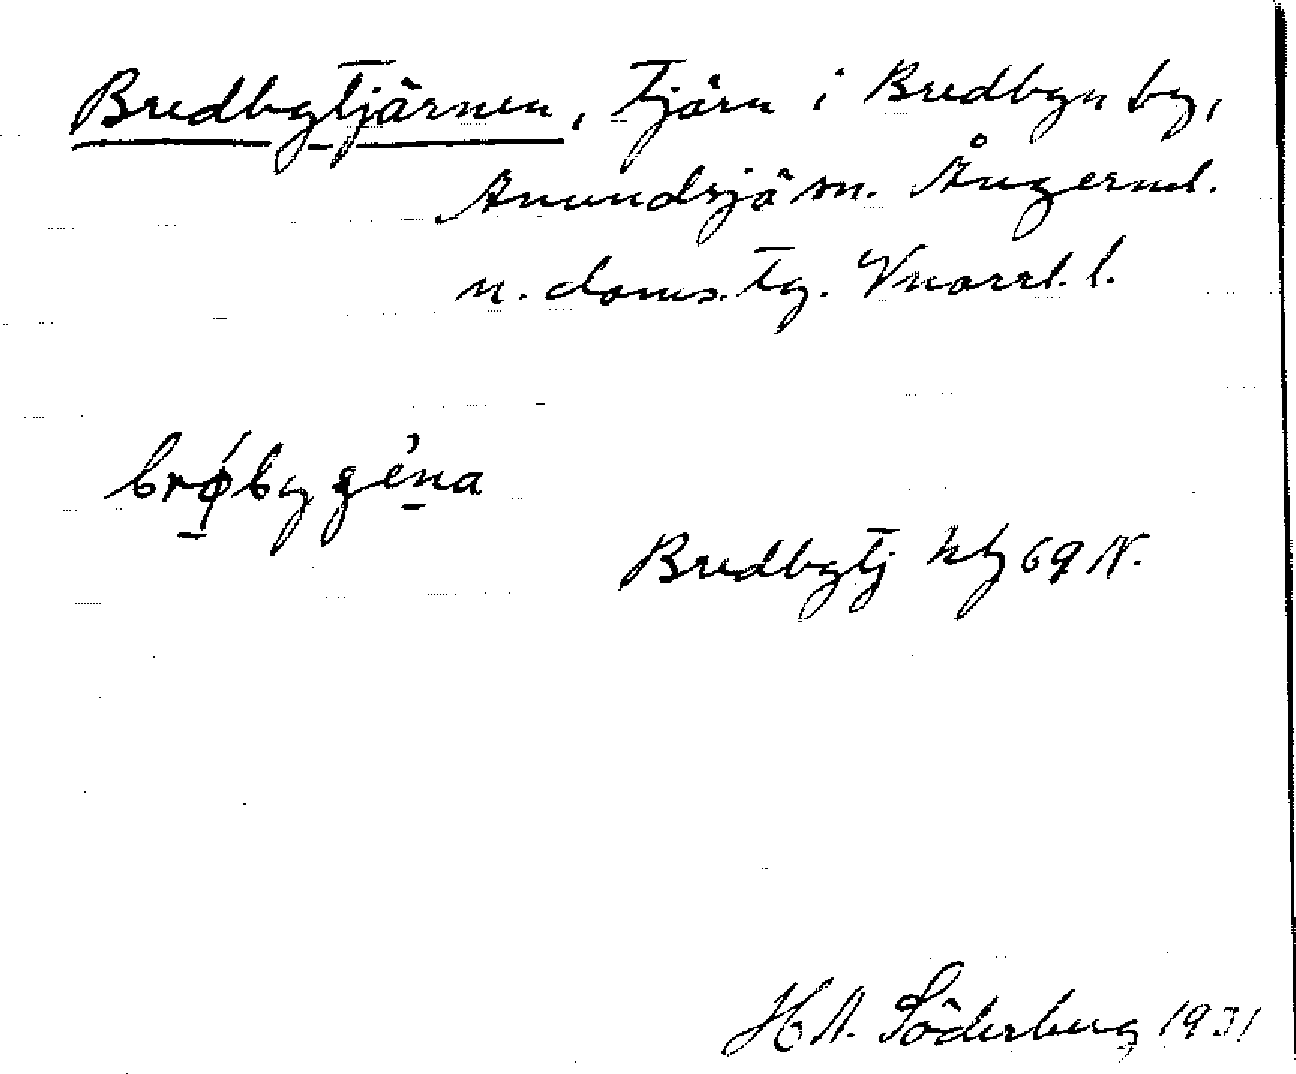 Bredbytjärnen, tjärn i Bredbyn by,
Anundsjö sn. Ångerml.
n. doms. tg. Vnorrl. l.
brøbygéna
Bredbytj kbl 69 N.
H A. Söderberg 1931